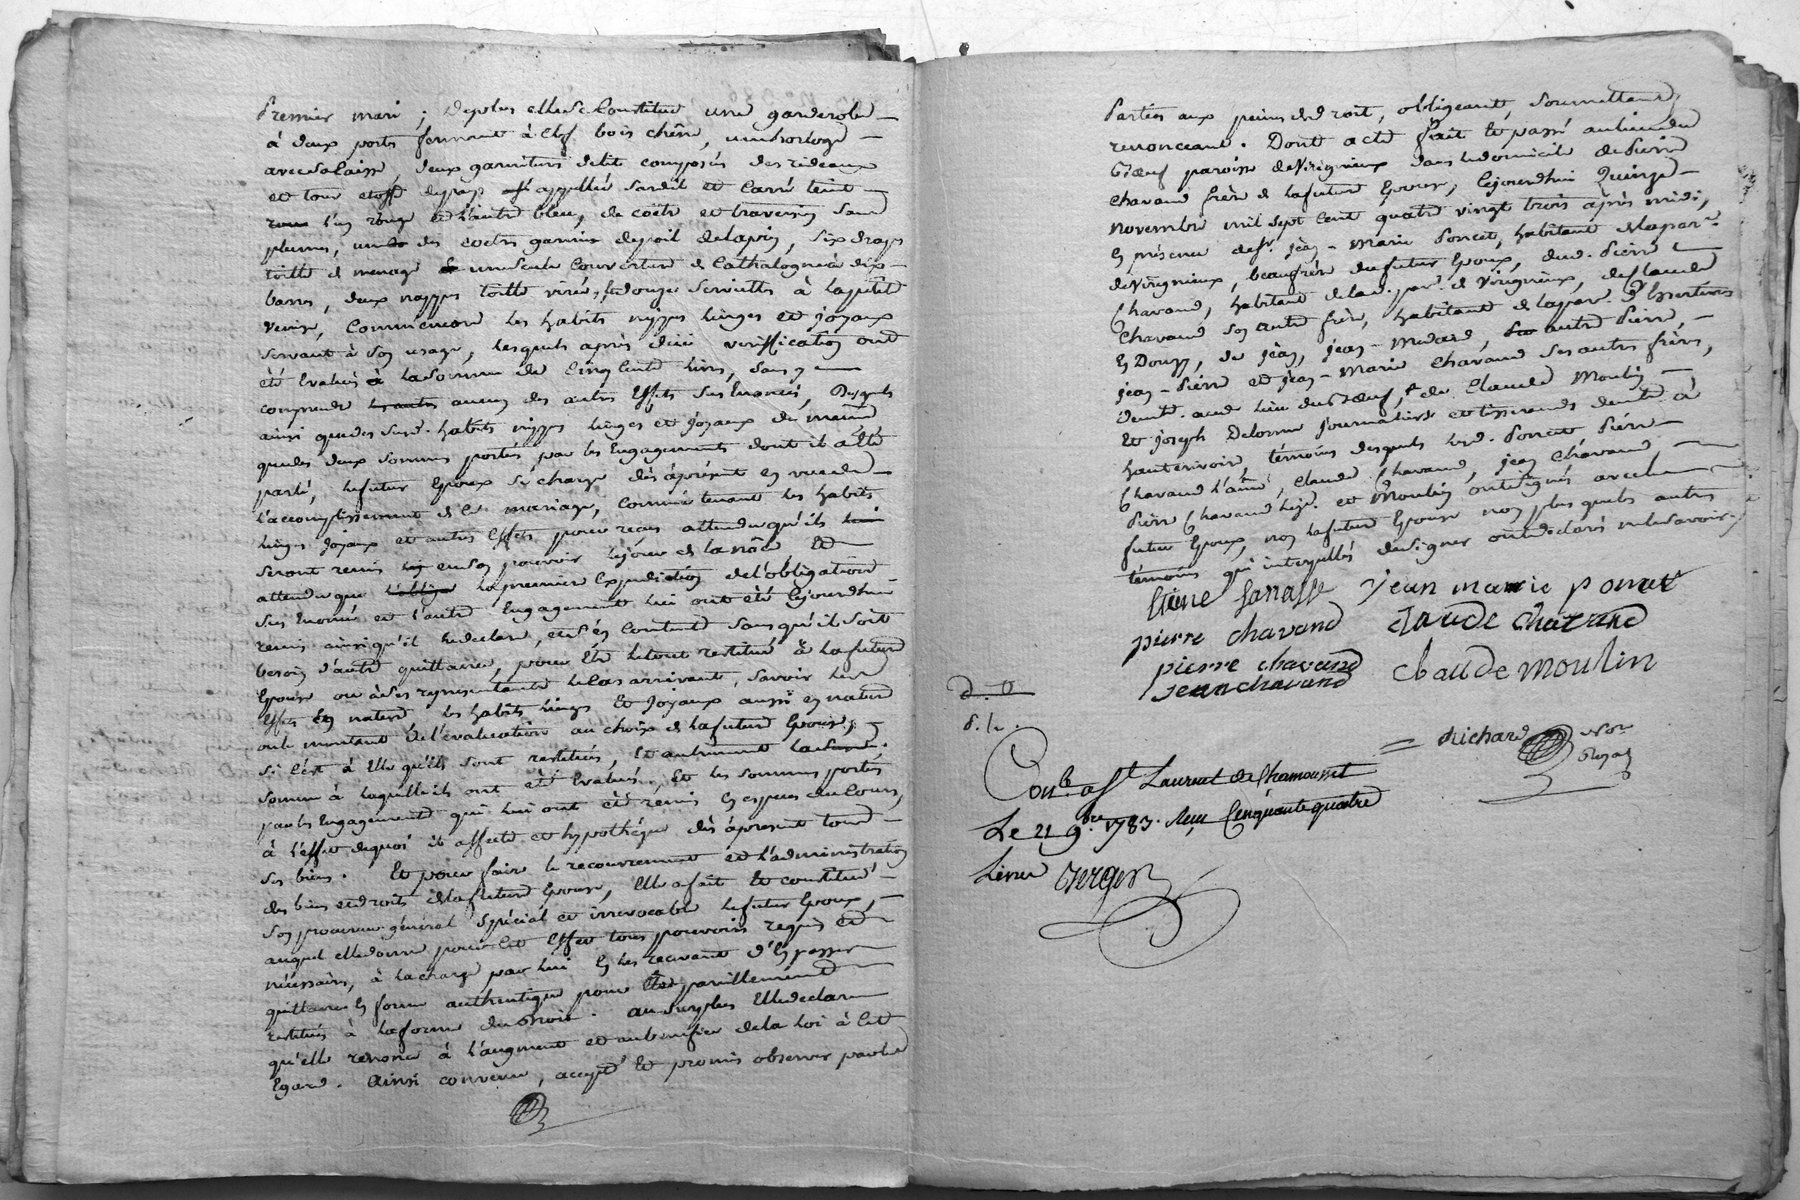 Premier mari ; Deplus elle se Constitue une garderobe
à deux portes fermant à clef bois chêne, une horloge
avec sa Caisse, deux garnitures de lit composés des rideaux
et tour etoffe depays appellée sardit et Carré teint
l'un rouge et l'autre bleu, de coëtre et traversin sans
plumes, un des coetres garnie depoil delapin, six draps
toille de menage une seule Couverture de Cathalogne à dix
barres, deux nappes toille virée, et douze serviettes à la petite
Venise, Comm'encore les habits nippes linges et joyaux
servant à son usage, lesquels après due veriffication ont
été Evalués à la somme de Cinq Cents livres, sans y
comprendre aucun des autres Effets sus Enoncés, Desquels
ainsi que des susd. habits nippes linges et joyaux de même
que des deux sommes portées par les Engagements dont il a été
parlé, le futur Epoux se charge dès àprésent en vue de
l'accomplissement de Ce mariage, comme tenant les habits
linges joyaux et autres Effets pour reçus attendu qu'ils
seront remis en son pouvoir le jour de la nôce Et
attendu que la premiere Expedition de l'obligation
sus Enoncée et l'autre Engagement lui ont été Cejourdhui
remis ainsi qu'il le declare, et s'en Contente sans qu'il soit
besoin d'autre quittance, pour Etre le tout restitué à la future
Epouse ou à ses representants le Cas arrivant, savoir les
Effets En nature les habits linges Et joyaux aussi en nature
ou le montant de l'évaluation au choix de la future Epouse,
si C'est à Elle qu'ils sont restitués, Et autrement la
somme à laquelle ils ont été Evalués, Et les sommes portées
par les Engagements qui lui ont été remis En especes du Cours,
à l'effet dequoi il affecte et hypothéque dès àpresent tous
ses biens. Et pour faire le recouvrement et l'administration
des biens et droits de la future Epouse, Elle a fait Et constitué
son procureur général spécial et irrevocable le futur Epoux,
auquel elle donne pour Cet Effet tous pouvoirs requis Et
nécessaires, à la charge par lui En les recevant d'En passer
quittance En forme authentique pour Etre pareillement
restitués à la forme du droit. au surplus Elle declare
qu'elle renonce à l'augment et au benefice de la Loi à Cet
Egard. Ainsi convenu, accepté Et promis observer par les
Parties aux peines de droit, obligeant soumettant
renonceant. Dont acte fait Et passé au lieu du
paroisse de Virigneux dans le domicile de Pierre
Chavand frère de la future Epouse, Cejourdhui Quinze
novembre mil sept Cent quatre vingt trois après midi,
En présence de Sr. jean - marie Poncet, habitant de la par.
de Virigneux, beaufrère du futur Epoux, dud. Pierre
Chavand, habitant de lad. par. de Virigneux, de Claude
Chavand son autre frère, habitant de la par. d'Essertines
En Donzy, de jean, jean - medard, autre Pierre,
jean - Pierre et jean - Marie Chavand ses autres frères,
demt. aud lieu du et de Claude Moulin
Et joseph Delorme journaliers et tisserands demt. à
hauterivoire, témoins desquels led. Poncet Pierre
Chavand l'ainé, Claude Chavand, jean Chavand
Pierre Chavand et Moulin ont signés avec le
futur Epoux, non la future Epouse non plus que les autres
témoins qui interpellés de signer ont declaré ne le savoir.
jean marie poncet
pierre chavand claude chavand
pierre chavand claude moulin
jean chavand
Richard Nore
Royal
Con.lé a St Laurent de Chamousset
Le 21 9bre 1783. Reçu Cinquante quatre
Livres